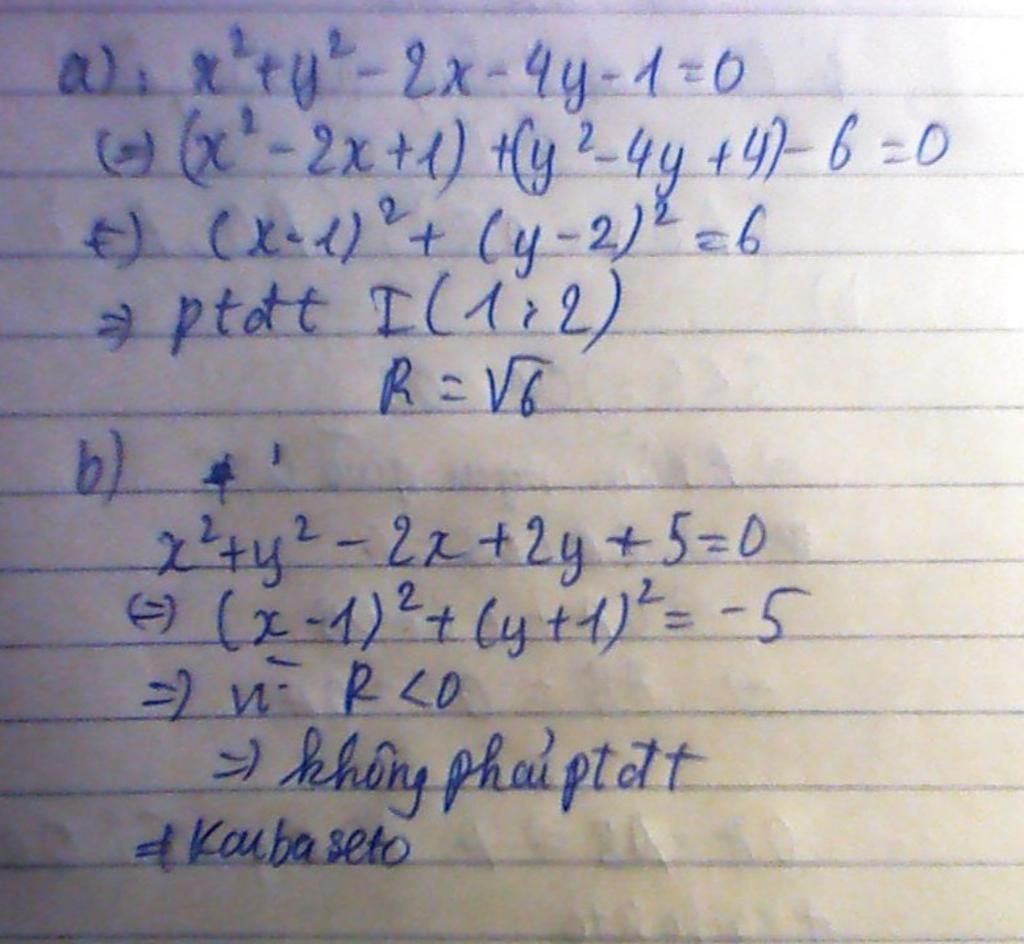 a): x²+y²-2x-4y-1=0
(=) (x²-2x+1)+(y²-4y+4)-6=0
(=) (x-1)²+(y-2)²=6
=> ptđtt I(1;2)
R=√6
b)
x²+y²-2x+2y+5=0
(=) (x-1)²+(y+1)²=-5
=> vì R<0
=> không phải ptđtt
Kaibaseto